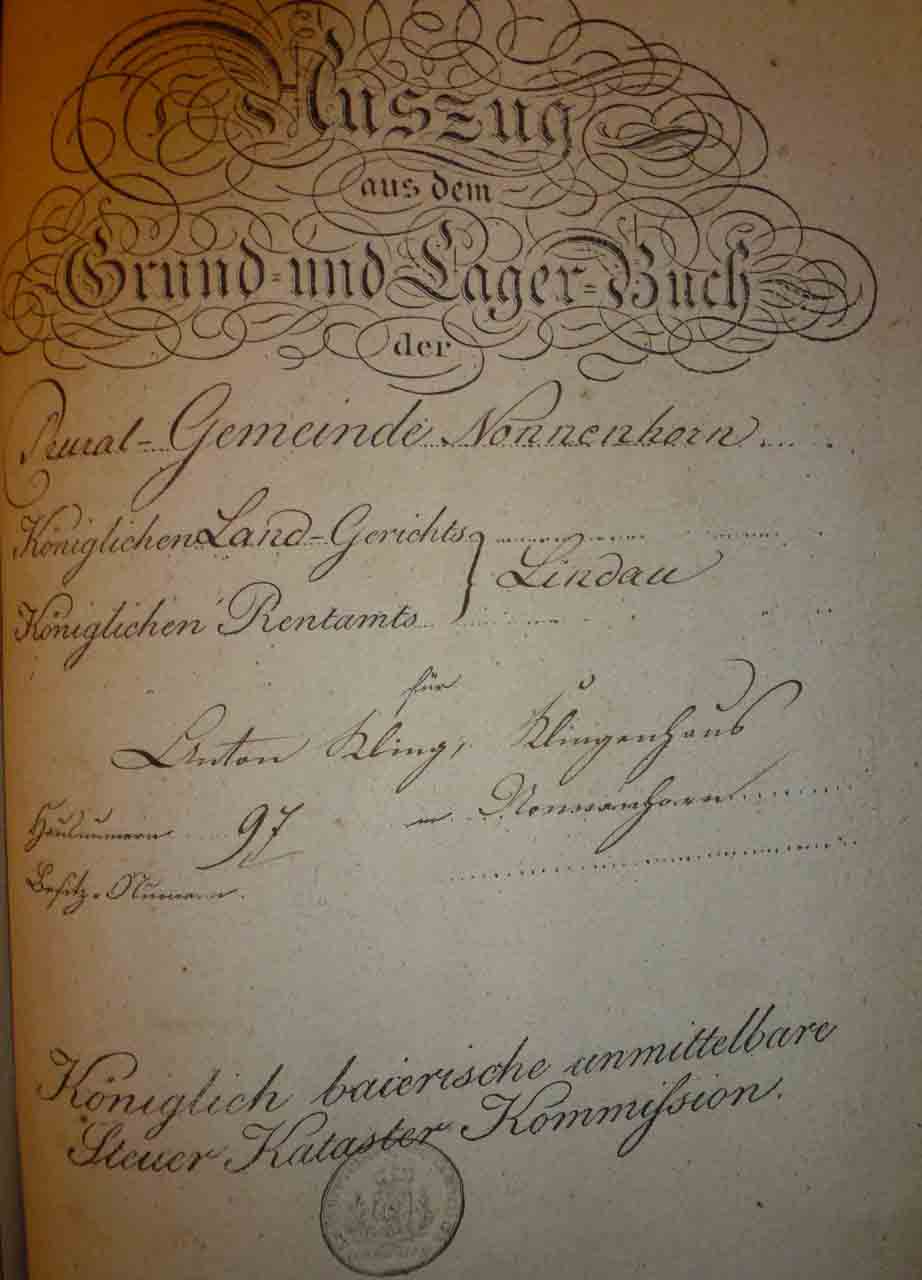 Auszug
aus dem
Grund= und Lager=Buch
der
Rural-Gemeinde Nonnenhorn
Königlichen Land-Gerichts
Lindau
Königlichen Rentamts
für
Anton Kling, Klingenhaus
Hausnummern 97 in Nonnenhorn
Besitz-Nummern
Königlich baierische unmittelbare
Steuer Kataster Kommission.